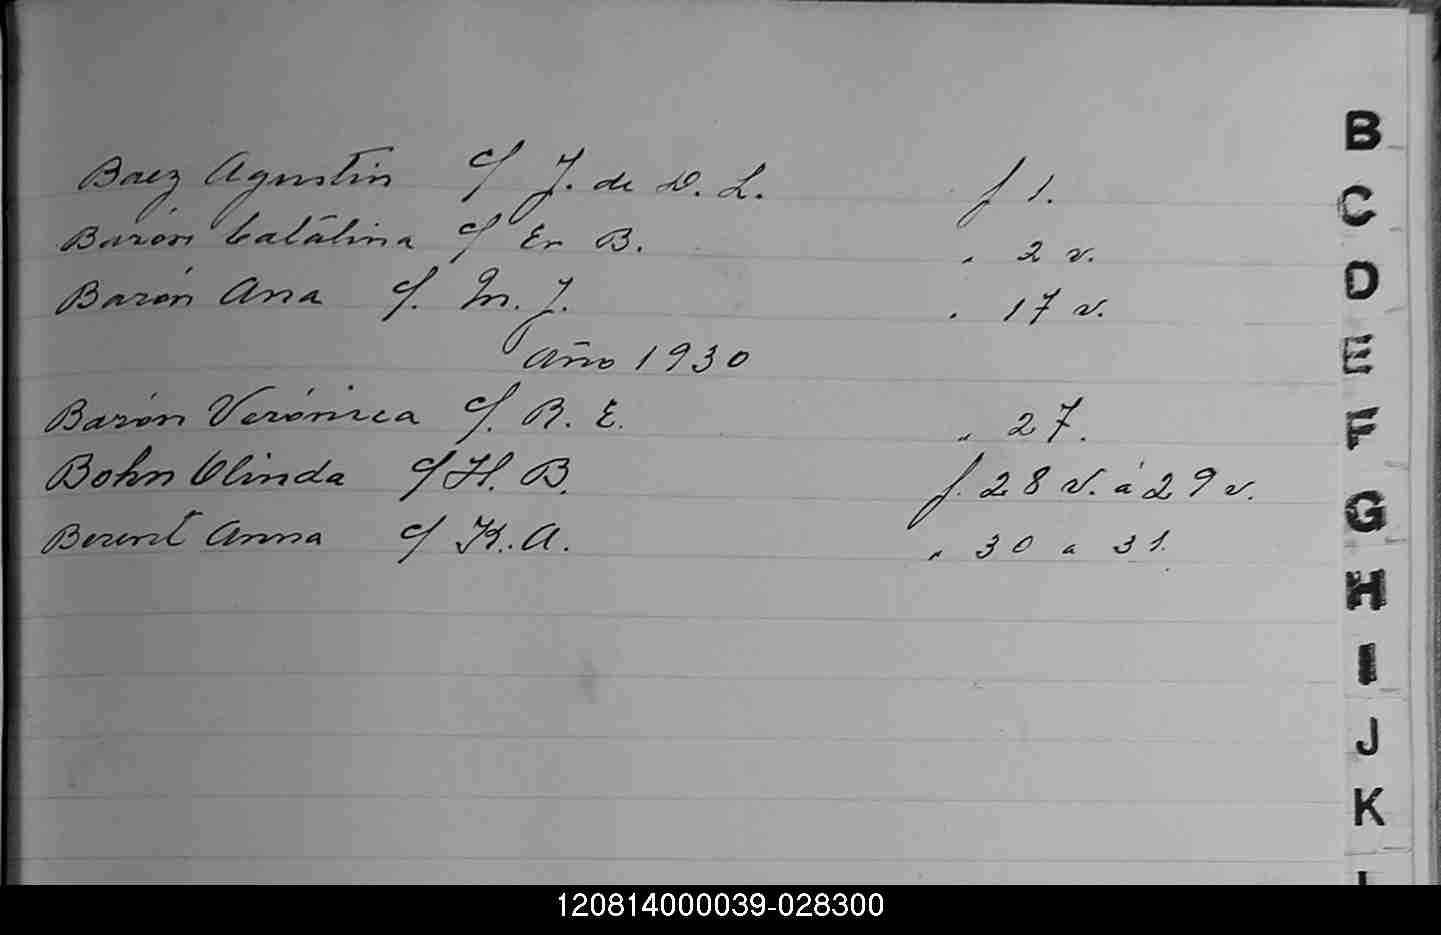 Baez Agustin c/ J. de D. L. f 1.
Barón Catalina c/ Er B. " 2 v.
Barón Ana c/. M. J. " 17 v.
Año 1930
Barón Verónica c/. R. E. " 27.
Bohn Olinda c/ H. B. f. 28 v. á 29 v.
Berent Anna c/ K. A. " 30 a 31.
B
C
D
E
F
G
H
I
J
K
120814000039-028300